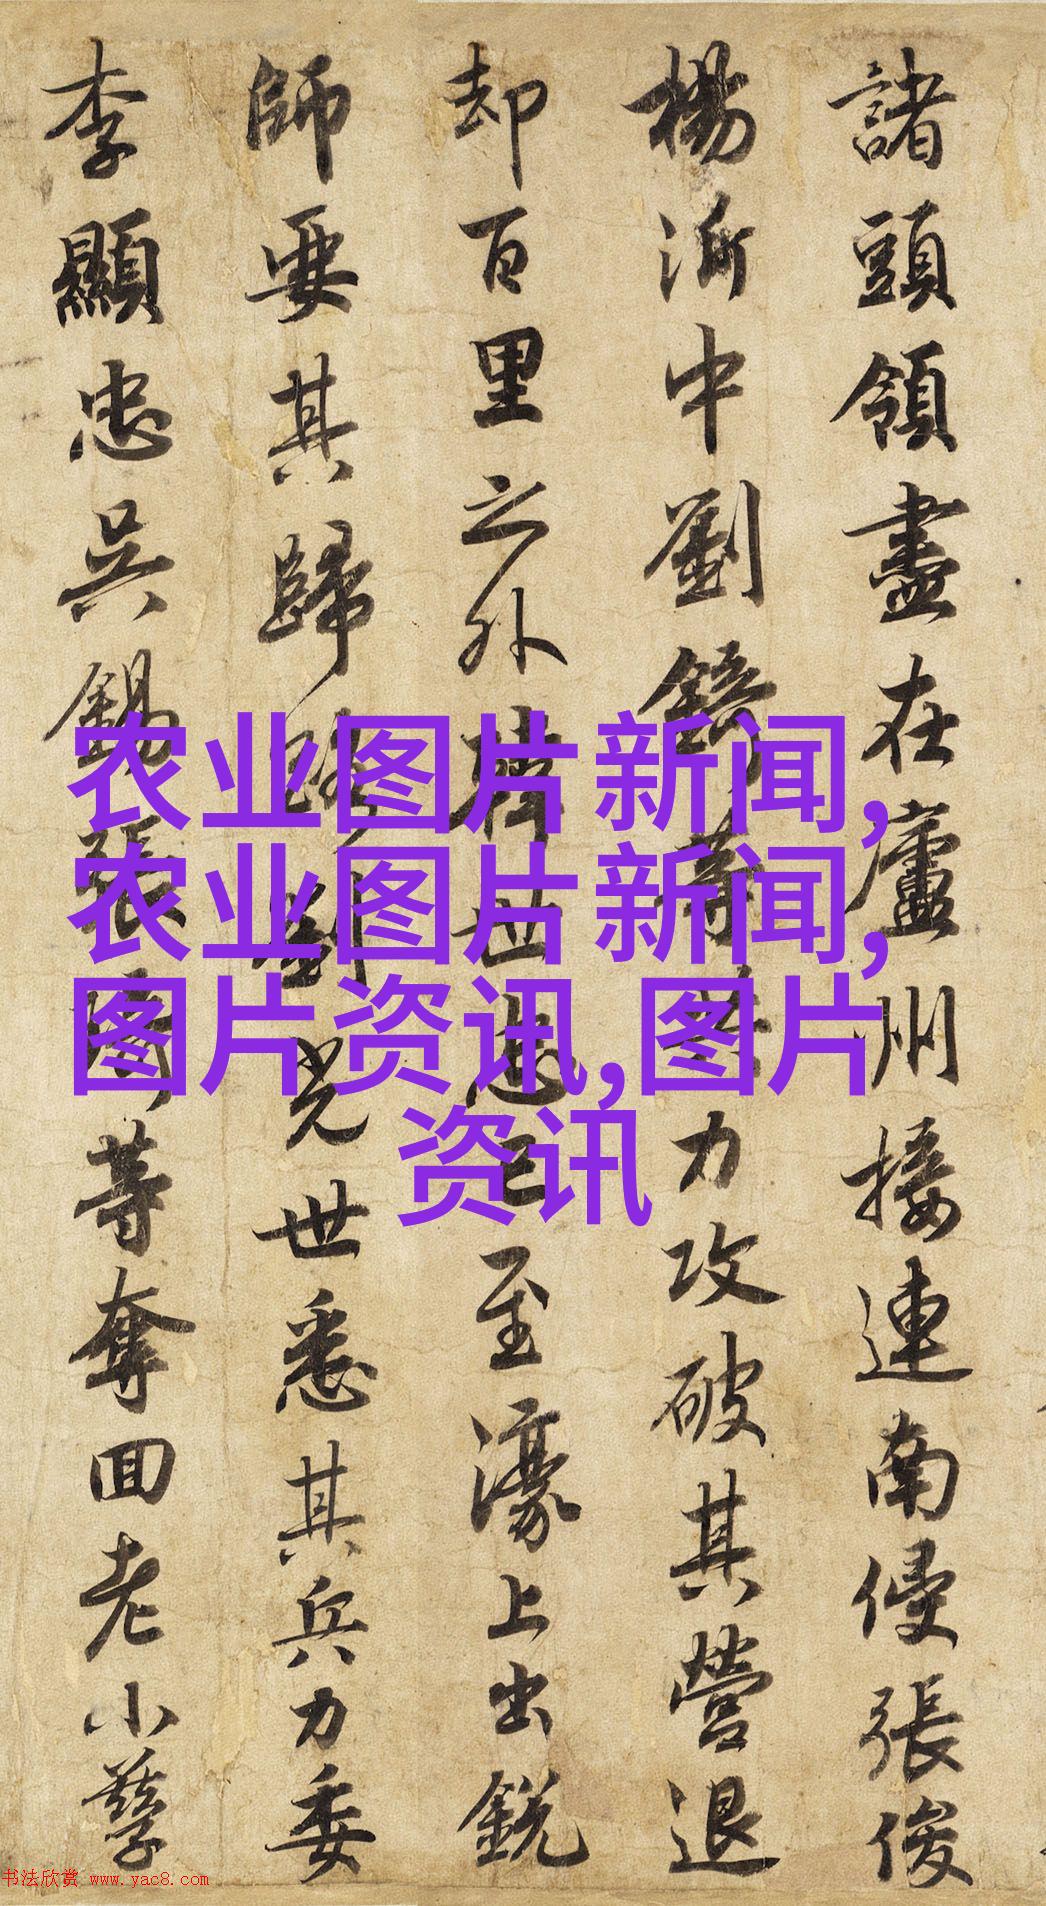 諸頭領盡在廬州接連南侵張俊
楊沂中劉錡等共力攻破其營退
却百里之外韓世忠已至濠上出銳
師要其歸路劉光世悉其兵力委
李顯忠吳錫張琦等奪回老小孳
农业图片新闻,
农业图片新闻,
图片资讯,图片
资讯
书法欣赏 www.yac8.com